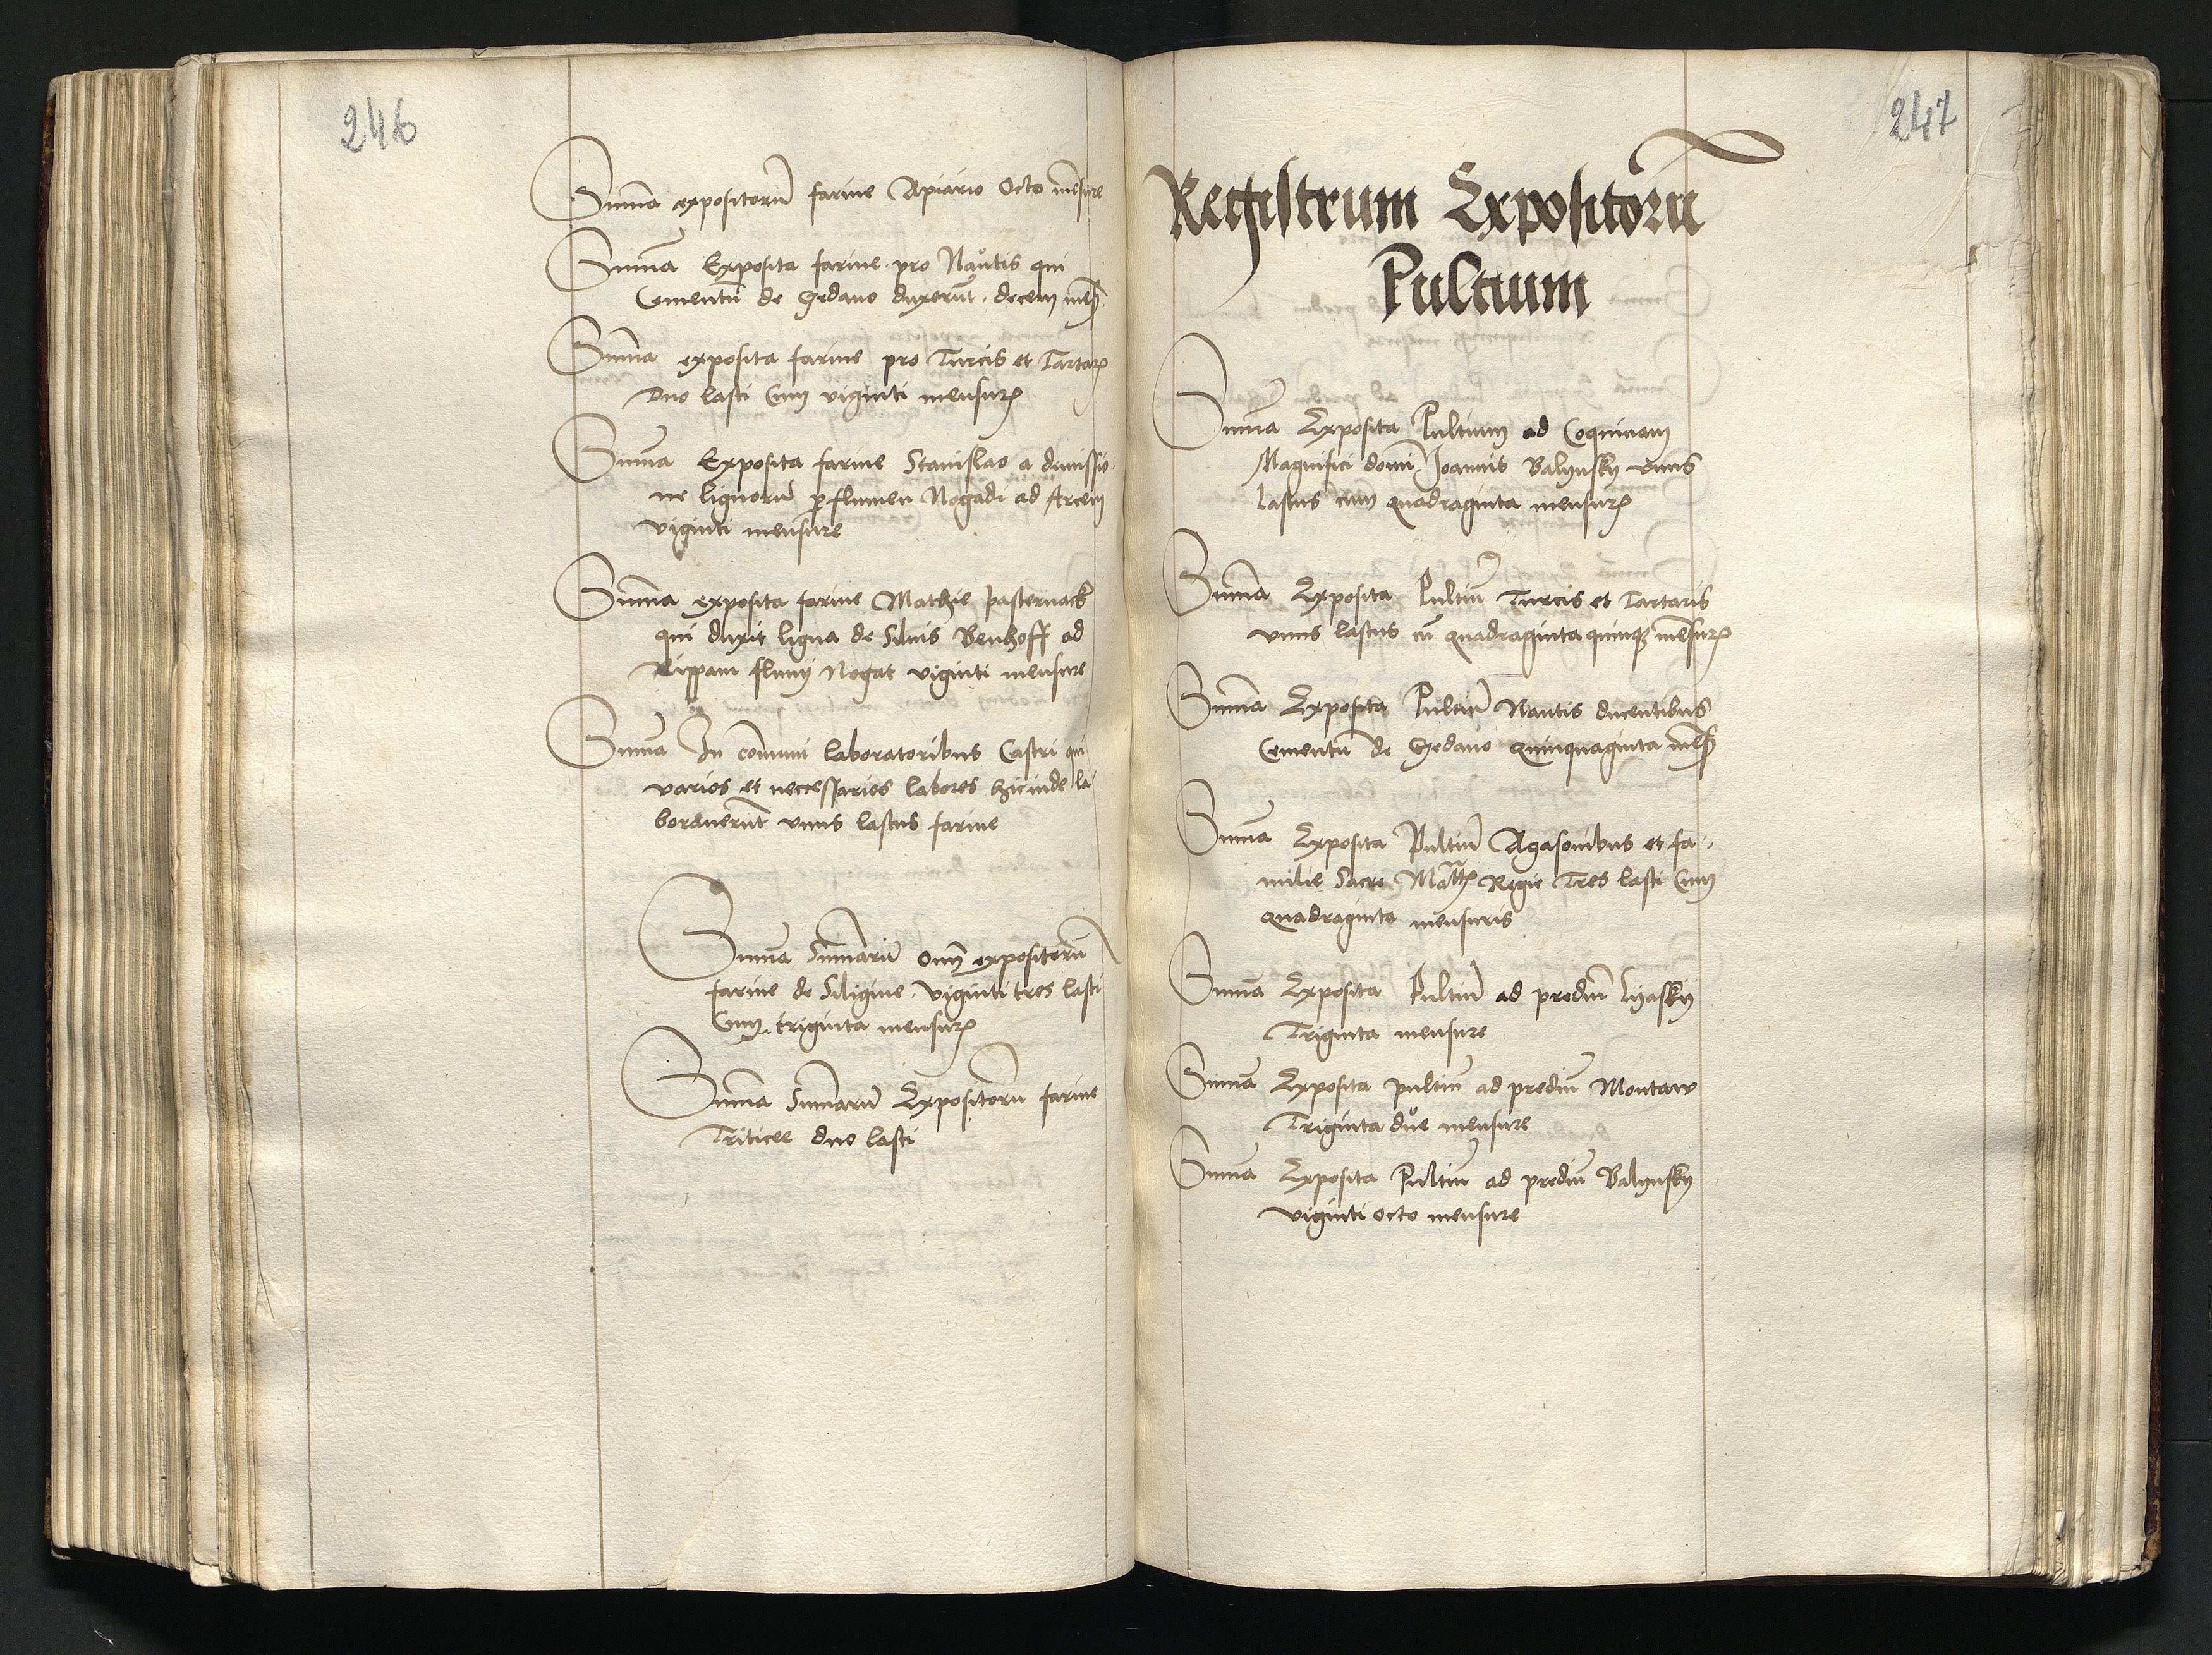 246
Summa expositorũ farine Apiario Octo mẽsure
Summa Exposita farine pro Nautis qui
Cementũ de Gedano duxerũt. decem mẽs
Summa exposita farine pro Turcis et Tartar
Duo lasti Cum viginti mensur
Summa Exposita farine Stanislao a dimissio
ne lignorũ p flumen Nogadi ad Arcem
viginti mensure
Summa exposita farine Mathie pasternack
qui duxit ligna de Siluis Benhoff ad
Rippam fluuij Nogat viginti mensure
Summa In commui laboratoribus Castri qui
varios et necessarios labores hicinde la
borauerũt vnus lastus farine
Summa Summarũ Omĩ expositorũ
farine de Siligine. viginti tres lasti
Cum. triginta mensur
Summa Summarũ Expositorũ farine
Triticee duo lasti
247
Registrum Expositorũ
Pultium
Summa Exposita Pultium ad Coquinam
Magnifici domi Joannis Balynsky vnus
lastus cum quadraginta mensur
Summa Exposita Pultiũ Turcis et Tartaris
vnus lastus cũ quadraginta quinq mẽsur
Summa Exposita Pultiũ Nautis ducentibus
Cementũ de Gedano quinquaginta mẽs
Summa Exposita Pultiũ Agasonibus et fa
milie Sacre Matt Regie Tres lasti Cum
quadraginta mensuris
Summa Exposita Pultiũ ad prediũ Lyasky
Triginta mensure
Summa Exposita pultiũ ad prediũ Montaw
Triginta due mensure
Summa Exposita Pultiũ ad prediũ Balynsky
viginti octo mensure